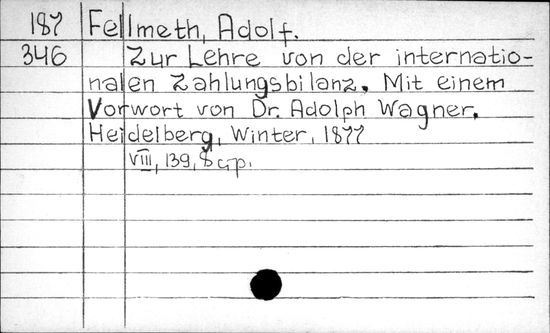 187 Fellmeth, Adolf.
346 Zur Lehre von der internatio-
nalen Zahlungsbilanz. Mit einem
Vorwort von Dr. Adolph Wagner.
Heidelberg, Winter, 1877
VIII, 139, 8 стр.